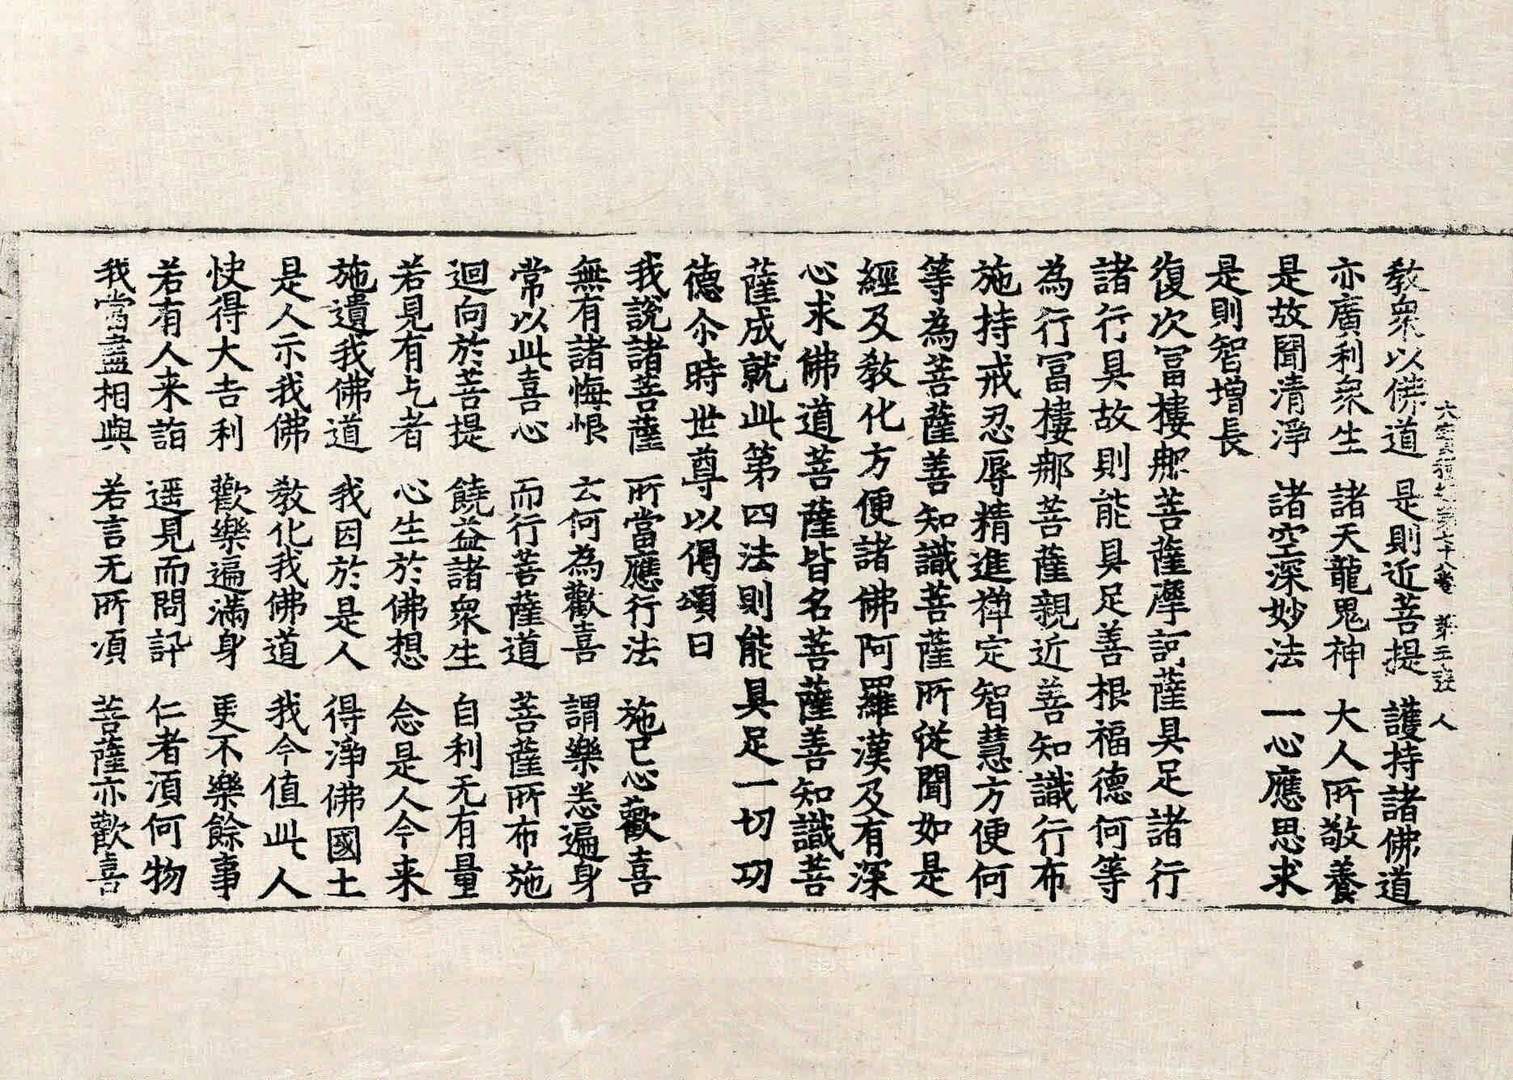 教衆以佛道　是則近菩提　護持諸佛道
亦廣利衆生　諸天龍鬼神　大人所敬養
是故聞清淨　諸空深妙法　一心應思求
是則智增長
復次冨樓那菩薩摩訶薩具足諸行
諸行具故則能具足善根福德何等
為行冨樓那菩薩親近善知識行布
施持戒忍辱精進禪定智慧方便何
等為菩薩善知識菩薩所從聞如是
經及教化方便諸佛阿羅漢及有深
心求佛道菩薩皆名菩薩善知識菩
薩成就此第四法則能具足一切功
德尒時世尊以偈頌曰
我說諸菩薩　所當應行法　施已心歡喜
無有諸悔恨　云何為歡喜　謂樂悉遍身
常以此喜心　而行菩薩道　菩薩所布施
迴向於菩提　饒益諸衆生　自利无有量
若見有乞者　心生於佛想　念是人今来
施遺我佛道　我因於是人　得淨佛國土
是人示我佛　教化我佛道　我今值此人
快得大吉利　歡樂遍滿身　更不樂餘事
若有人来詣　遥見而問訊　仁者湏何物
我當盡相與　若言无所湏　菩薩亦歡喜